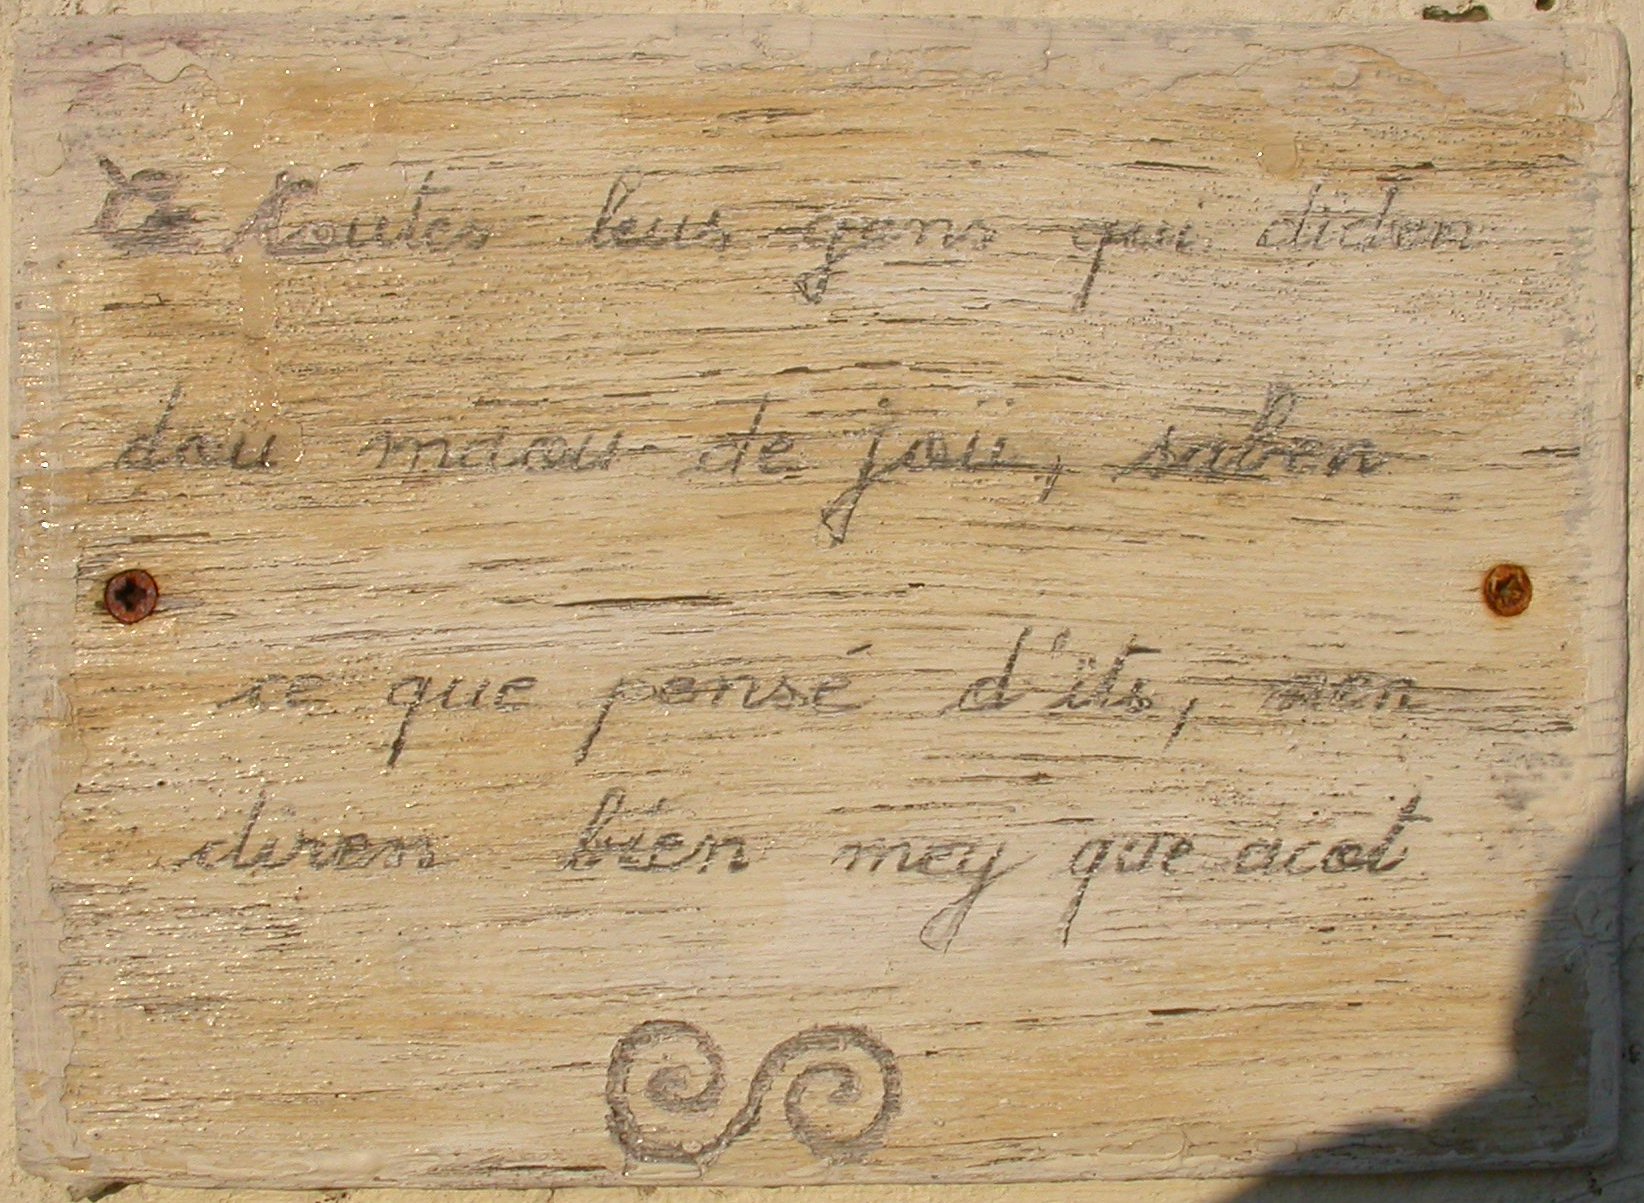 toutes leus gens qui diden
doü maou de joü, saben
ce que pensé d'its, men
diren bién mey que acot